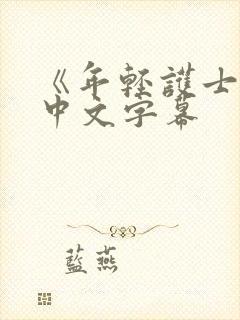 《年輕護士
中文字幕
藍燕